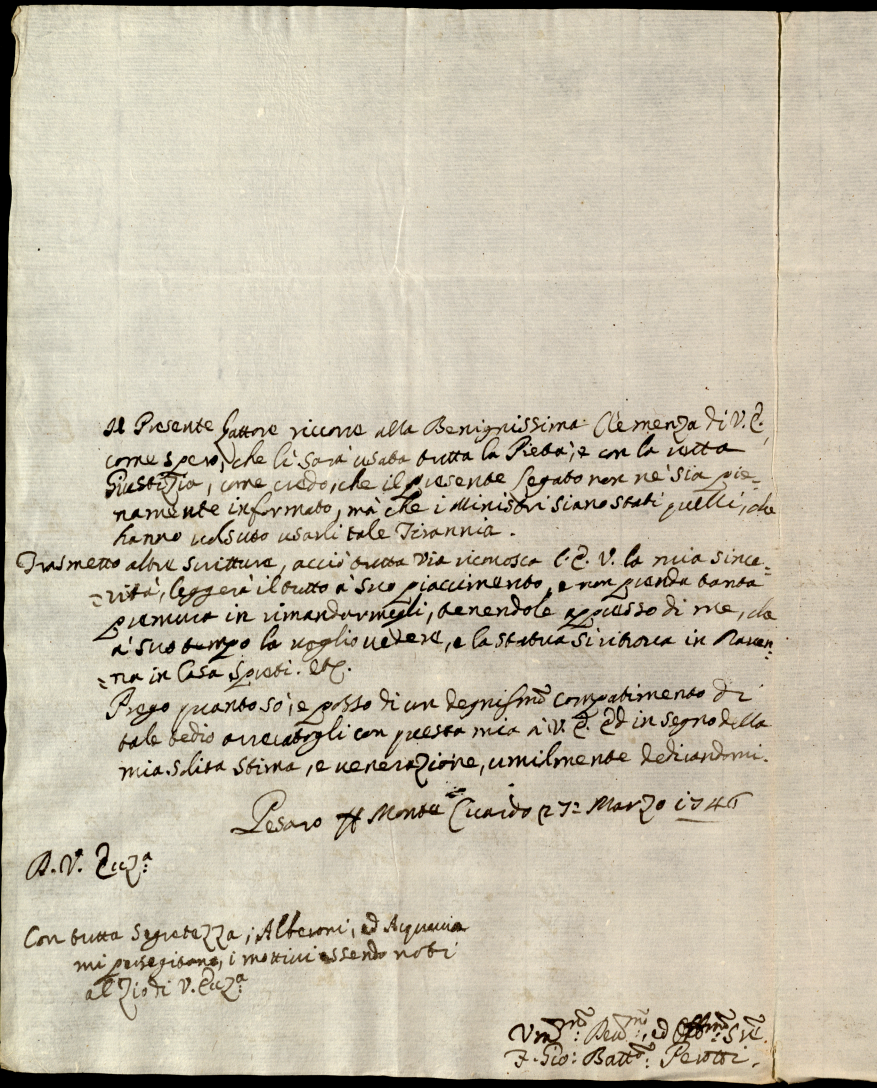 Il Presente Fattore ricorre alla Benignissima Clemenza di V. E.
come spero, che li sarà usata tutta la Pietà, e con la retta
Giustizia, come credo, che il presente Legato non ne sia pie=
namente informato, mà che i Ministri siano stati quelli, che
hanno volsuto usarli tale Tirannia.
Trasmetto altre scritture, acciò tutta via riconosca l'E. V. la mia since=
=rità, leggerà il tutto à suo piacimento, e non prenda tanta
premura in rimandarmegli, tenendole appresso di me, che
a' suo tempo la voglio vedere, e la statua si ritrova in Raven=
=na in Casa Spreti. etc.
Prego quanto sò, e posso di un degnissmo compatimento di
tale tedio arrecatogli con questa mia à V. E. Ed in segno della
mia solita stima, e venerazione, umilmente dedicandomi.
Pesaro Monte Ciccardo 27: Marzo 1746
A. V. Ecza:
Con tutta Segretezza, Alberoni, ed Acquaviva
mi persegitano, i mottivi essendo noti
al Zio di V. Ecza:
Umo: Devmo:, ed Obbmo Sre
F. Gio: Battta: Perotti.